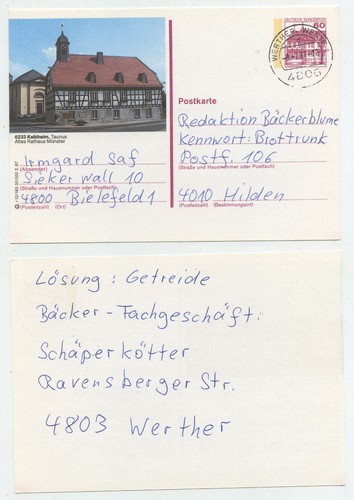 DEUTSCHE BUNDESPOST
60
WERTHER, WESTF
4806
6233 Kelkheim, Taunus
Altes Rathaus Münster
Postkarte
Redaktion Bäckerblume
Kennwort: Brottrunk
Postf. 106
(Straße und Hausnummer oder Postfach)
4010 Hilden
(Postleitzahl) (Bestimmungsort)
Irmgard Saf
(Absender)
Sieker Wall 10
(Straße und Hausnummer oder Postfach)
4800 Bielefeld 1
(Postleitzahl) (Ort)
Lösung: Getreide
Bäcker-Fachgeschäft:
Schäperkötter
Ravensberger Str.
4803 Werther